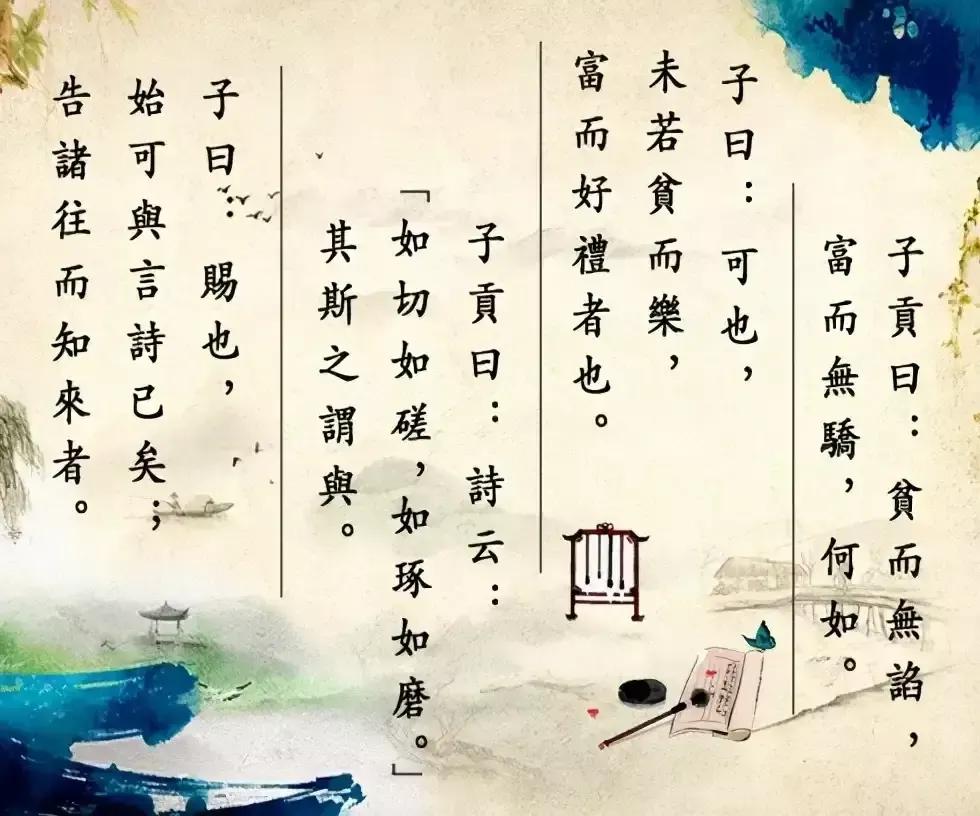 子貢曰：貧而無諂，
富而無驕，何如。
子曰：可也，
未若貧而樂，
富而好禮者也。
子貢曰：詩云：
「如切如磋，如琢如磨。」
其斯之謂與。
子曰：賜也，
始可與言詩已矣；
告諸往而知來者。